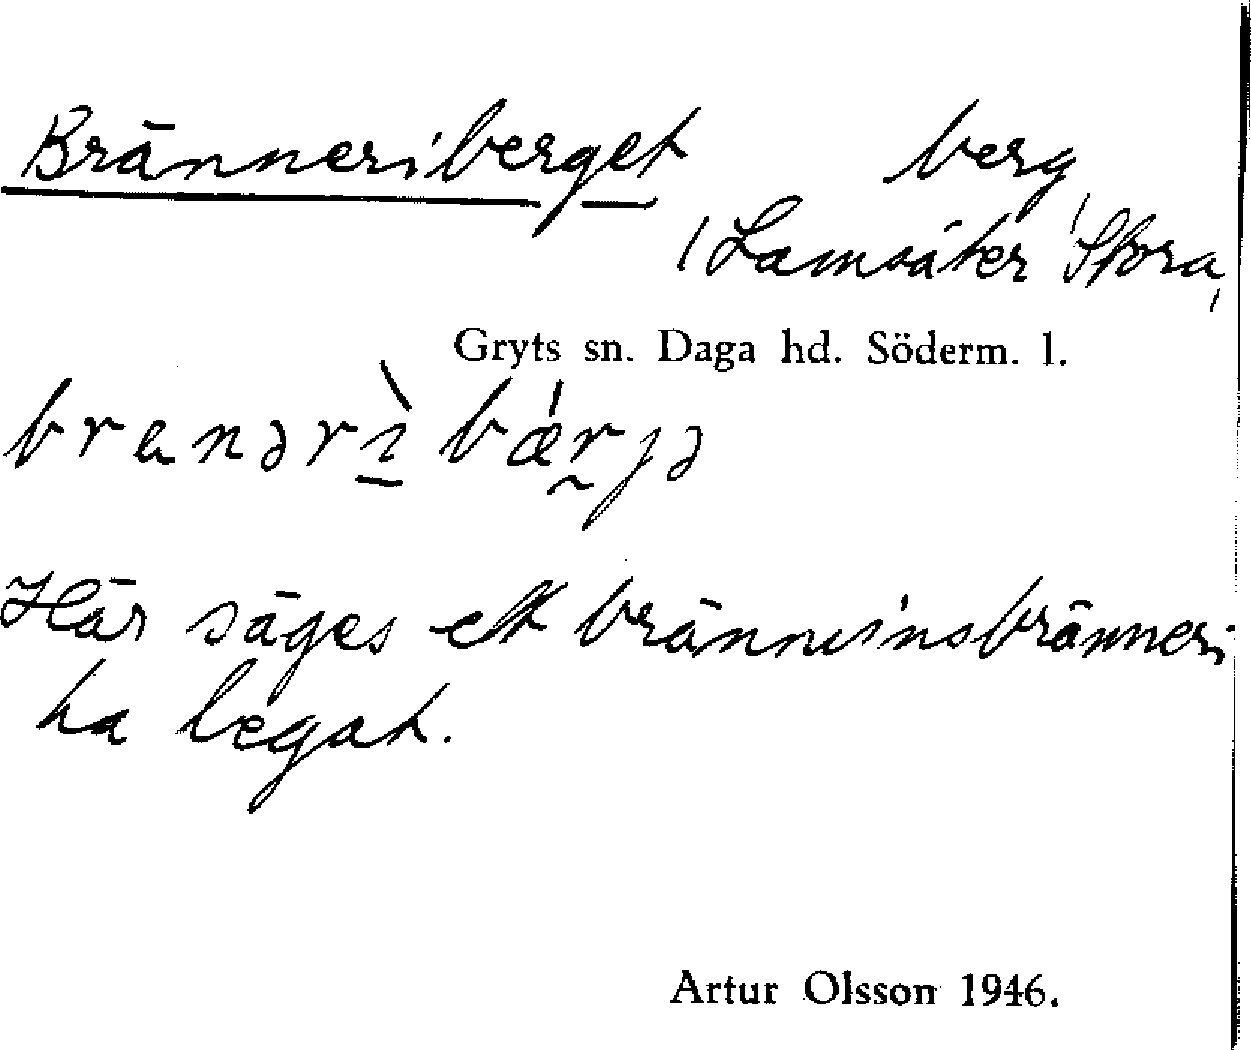 Bränneriberget berg
/Lamsäter 'Stora,
Gryts sn. Daga hd. Söderm. l.
Här säges ett brännvinsbränneri
ha legat.
Artur Olsson 1946.